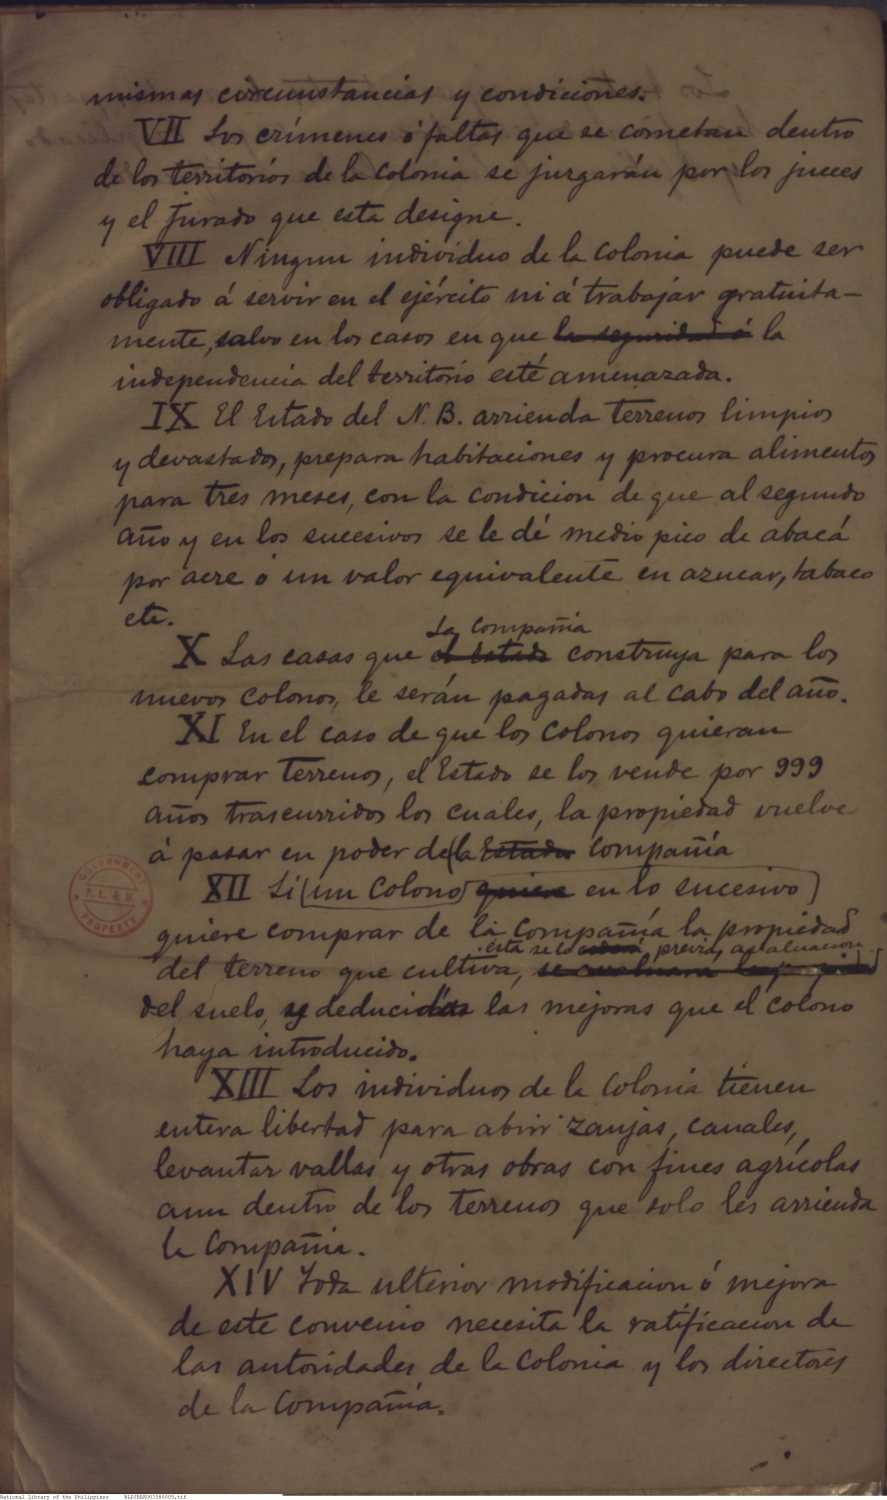 mismas circumstancias y condiciones.
VII Los crímenes ó faltas que se cometan dentro
de los territorios de la Colonia se juzgarán por los jueces
y el Jurado que esta designe.
VIII Ningun individuo de la Colonia puede ser
obligado á servir en el ejército ni á trabajar gratuita-
mente, salvo en los casos en que la seguridad ó la
independencia del territorio esté amenazada.
IX El Estado del N. B. arrienda terrenos limpios
y devastados, prepara habitaciones y procura alimentos
para tres meses, con la condicion de que al segundo
año y en los sucesivos se le dé medio pico de abacá
por acre ó un valor equivalente en azucar, tabaco
etc.
La Compañia
X Las casas que el Estado construya para los
nuevos colonos, le serán pagadas al cabo del año.
XI En el caso de que los Colonos quieran
comprar terrenos, el Estado se los vende por 999
años trascurridos los cuales, la propiedad vuelve
á pasar en poder de (la Estado Compañía
XII Si (un Colono) quiere en lo sucesivo)
quiere comprar de la Compañía la propiedad
esta se lo cederá, previa apaluacion
del terreno que cultiva, se evaluara la propiedad
del suelo, y deducidas las mejoras que el colono
haya introducido.
XIII Los individuos de la Colonia tienen
entera libertad para abrir zanjas, canales,
levantar vallas y otras obras con fines agrícolas
aun dentro de los terrenos que solo les arrienda
la Compañia.
XIV Toda ulterior modificacion ó mejora
de este convenio necesita la ratificacion de
las autoridades de la Colonia y los directores
de la Compañía.
GOVERNMENT
P. L. & M.
PROPERTY
National Library of the Philippines